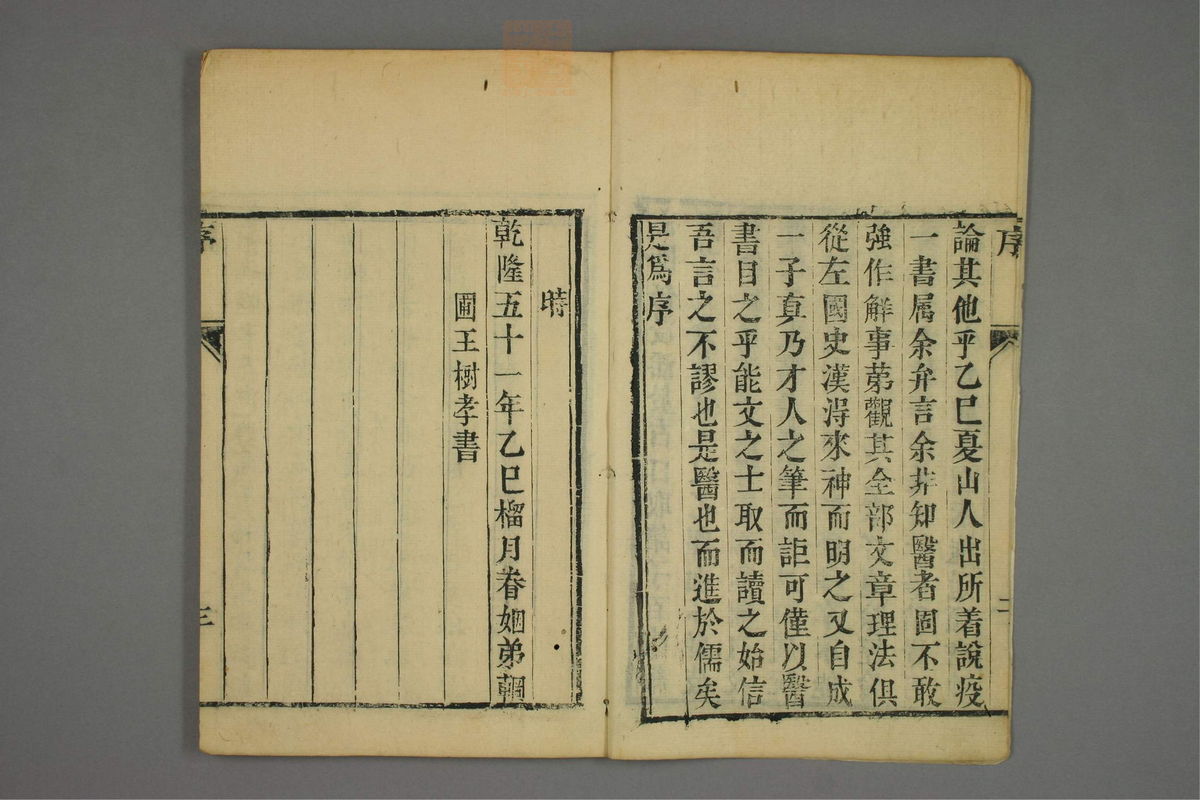 序
二
論其他乎乙巳夏山人出所着說疫
一書属余弁言余非知醫者固不敢
強作解事苐觀其全部文章理法俱
從左國史漢淂來神而明之又自成
一子真乃才人之筆而詎可僅以醫
書目之乎能文之士取而讀之始信
吾言之不謬也是醫也而進於儒矣
是為序
時
乾隆五十一年乙巳榴月眷姻弟輞
圃王樹孝書
序
三